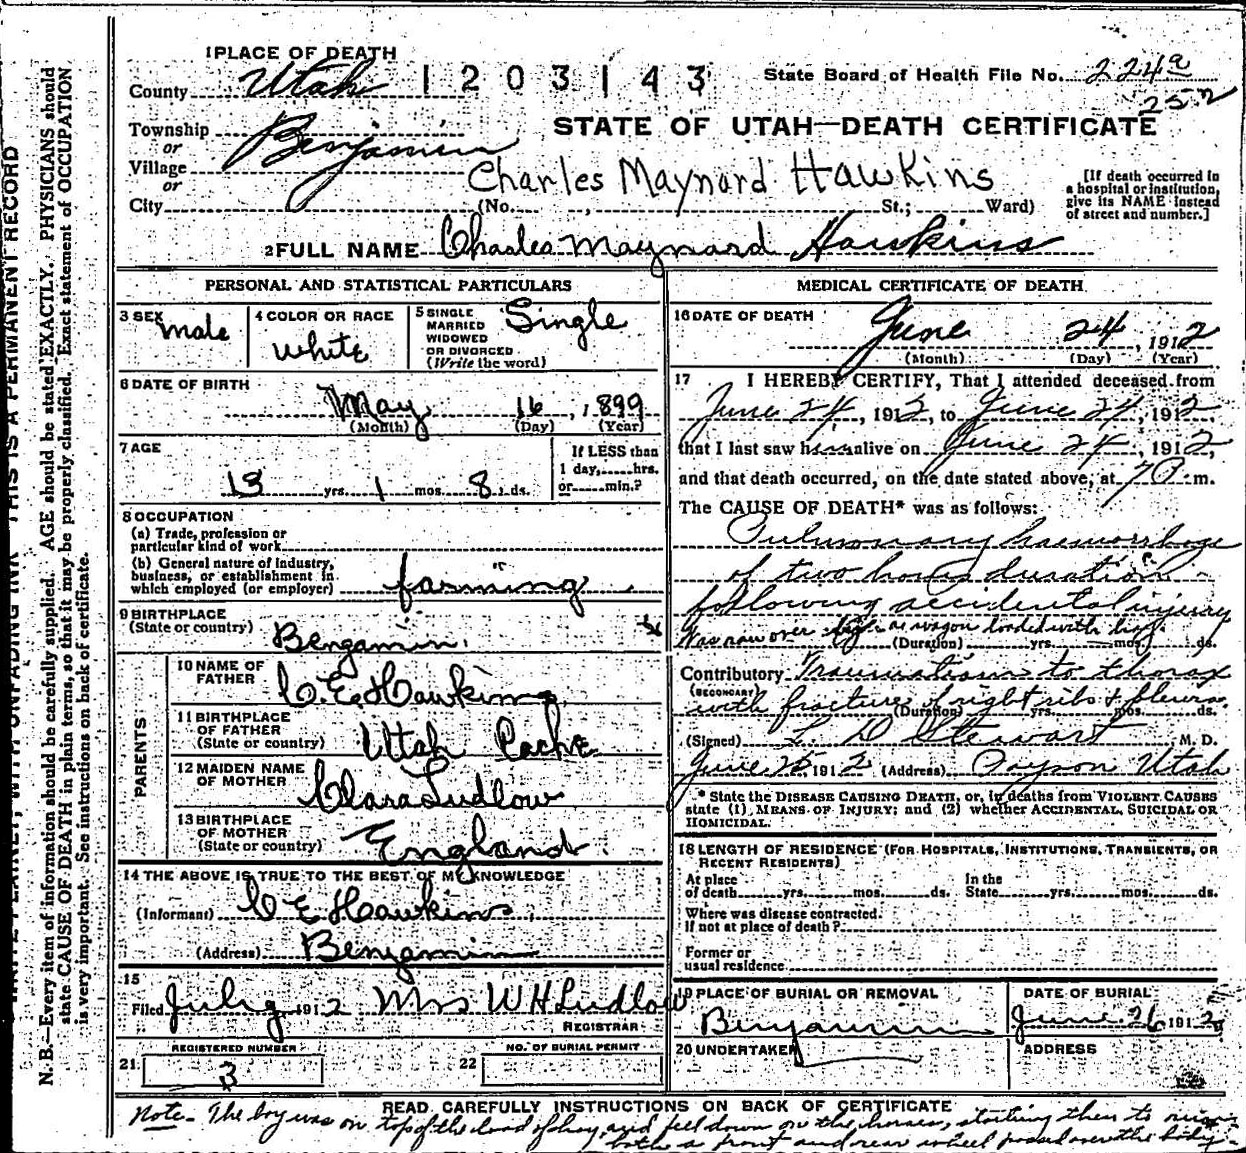 1 PLACE OF DEATH
County Utah 1203143 State Board of Health File No. 224a
252
Township or Village or City Benjamin
STATE OF UTAH—DEATH CERTIFICATE
Charles Maynard Hawkins
(No. , St.; Ward)
[If death occurred in a hospital or institution, give its NAME instead of street and number.]
2 FULL NAME Charles Maynard Hawkins
PERSONAL AND STATISTICAL PARTICULARS
3 SEX male
4 COLOR OR RACE white
5 SINGLE MARRIED WIDOWED OR DIVORCED (Write the word) Single
6 DATE OF BIRTH
May 16, 1899
(Month) (Day) (Year)
7 AGE
13 yrs. 1 mos. 8 ds.
If LESS than 1 day, hrs. or min.?
8 OCCUPATION
(a) Trade, profession or particular kind of work
(b) General nature of industry, business, or establishment in which employed (or employer) farming
9 BIRTHPLACE
(State or country) Benjamin
PARENTS
10 NAME OF FATHER C. E. Hawkins
11 BIRTHPLACE OF FATHER (State or country) Utah Cache
12 MAIDEN NAME OF MOTHER Clara Ludlow
13 BIRTHPLACE OF MOTHER (State or country) England
14 THE ABOVE IS TRUE TO THE BEST OF MY KNOWLEDGE
(Informant) C E Hawkins
(Address) Benjamin
15
Filed July 1912 Mrs W H Ludlow
REGISTRAR
21 REGISTERED NUMBER 3
22 NO. OF BURIAL PERMIT
MEDICAL CERTIFICATE OF DEATH
16 DATE OF DEATH
June 24, 1912
(Month) (Day) (Year)
17 I HEREBY CERTIFY, That I attended deceased from
June 24, 1912, to June 24, 1912
that I last saw him alive on June 24, 1912,
and that death occurred, on the date stated above, at 7 P. m.
The CAUSE OF DEATH* was as follows:
Pulmonary haemorrhage
of two hours duration
following accidental injury
Was run over by a wagon loaded with hay
(Duration) yrs. mos. ds.
Contributory Traumatism to thorax
(SECONDARY) with fracture of right ribs + pleura
(Duration) yrs. mos. ds.
(Signed) L. D. Stewart M. D.
June 25 1912 (Address) Payson Utah
* State the DISEASE CAUSING DEATH, or, in deaths from VIOLENT CAUSES state (1) MEANS OF INJURY; and (2) whether ACCIDENTAL, SUICIDAL OR HOMICIDAL.
18 LENGTH OF RESIDENCE (FOR HOSPITALS, INSTITUTIONS, TRANSIENTS, OR RECENT RESIDENTS)
At place of death yrs. mos. ds. In the State yrs. mos. ds.
Where was disease contracted. If not at place of death?
Former or usual residence
19 PLACE OF BURIAL OR REMOVAL Benjamin
DATE OF BURIAL June 26 1912
20 UNDERTAKER
ADDRESS
READ CAREFULLY INSTRUCTIONS ON BACK OF CERTIFICATE
Note - The boy was on top of the load of hay, and fell down on the horses, starting them to run
both a front and rear wheel passed over the body.
THIS IS A PERMANENT RECORD
N. B.—Every item of information should be carefully supplied. AGE should be stated EXACTLY. PHYSICIANS should
state CAUSE OF DEATH in plain terms, so that it may be properly classified. Exact statement of OCCUPATION
is very important. See instructions on back of certificate.